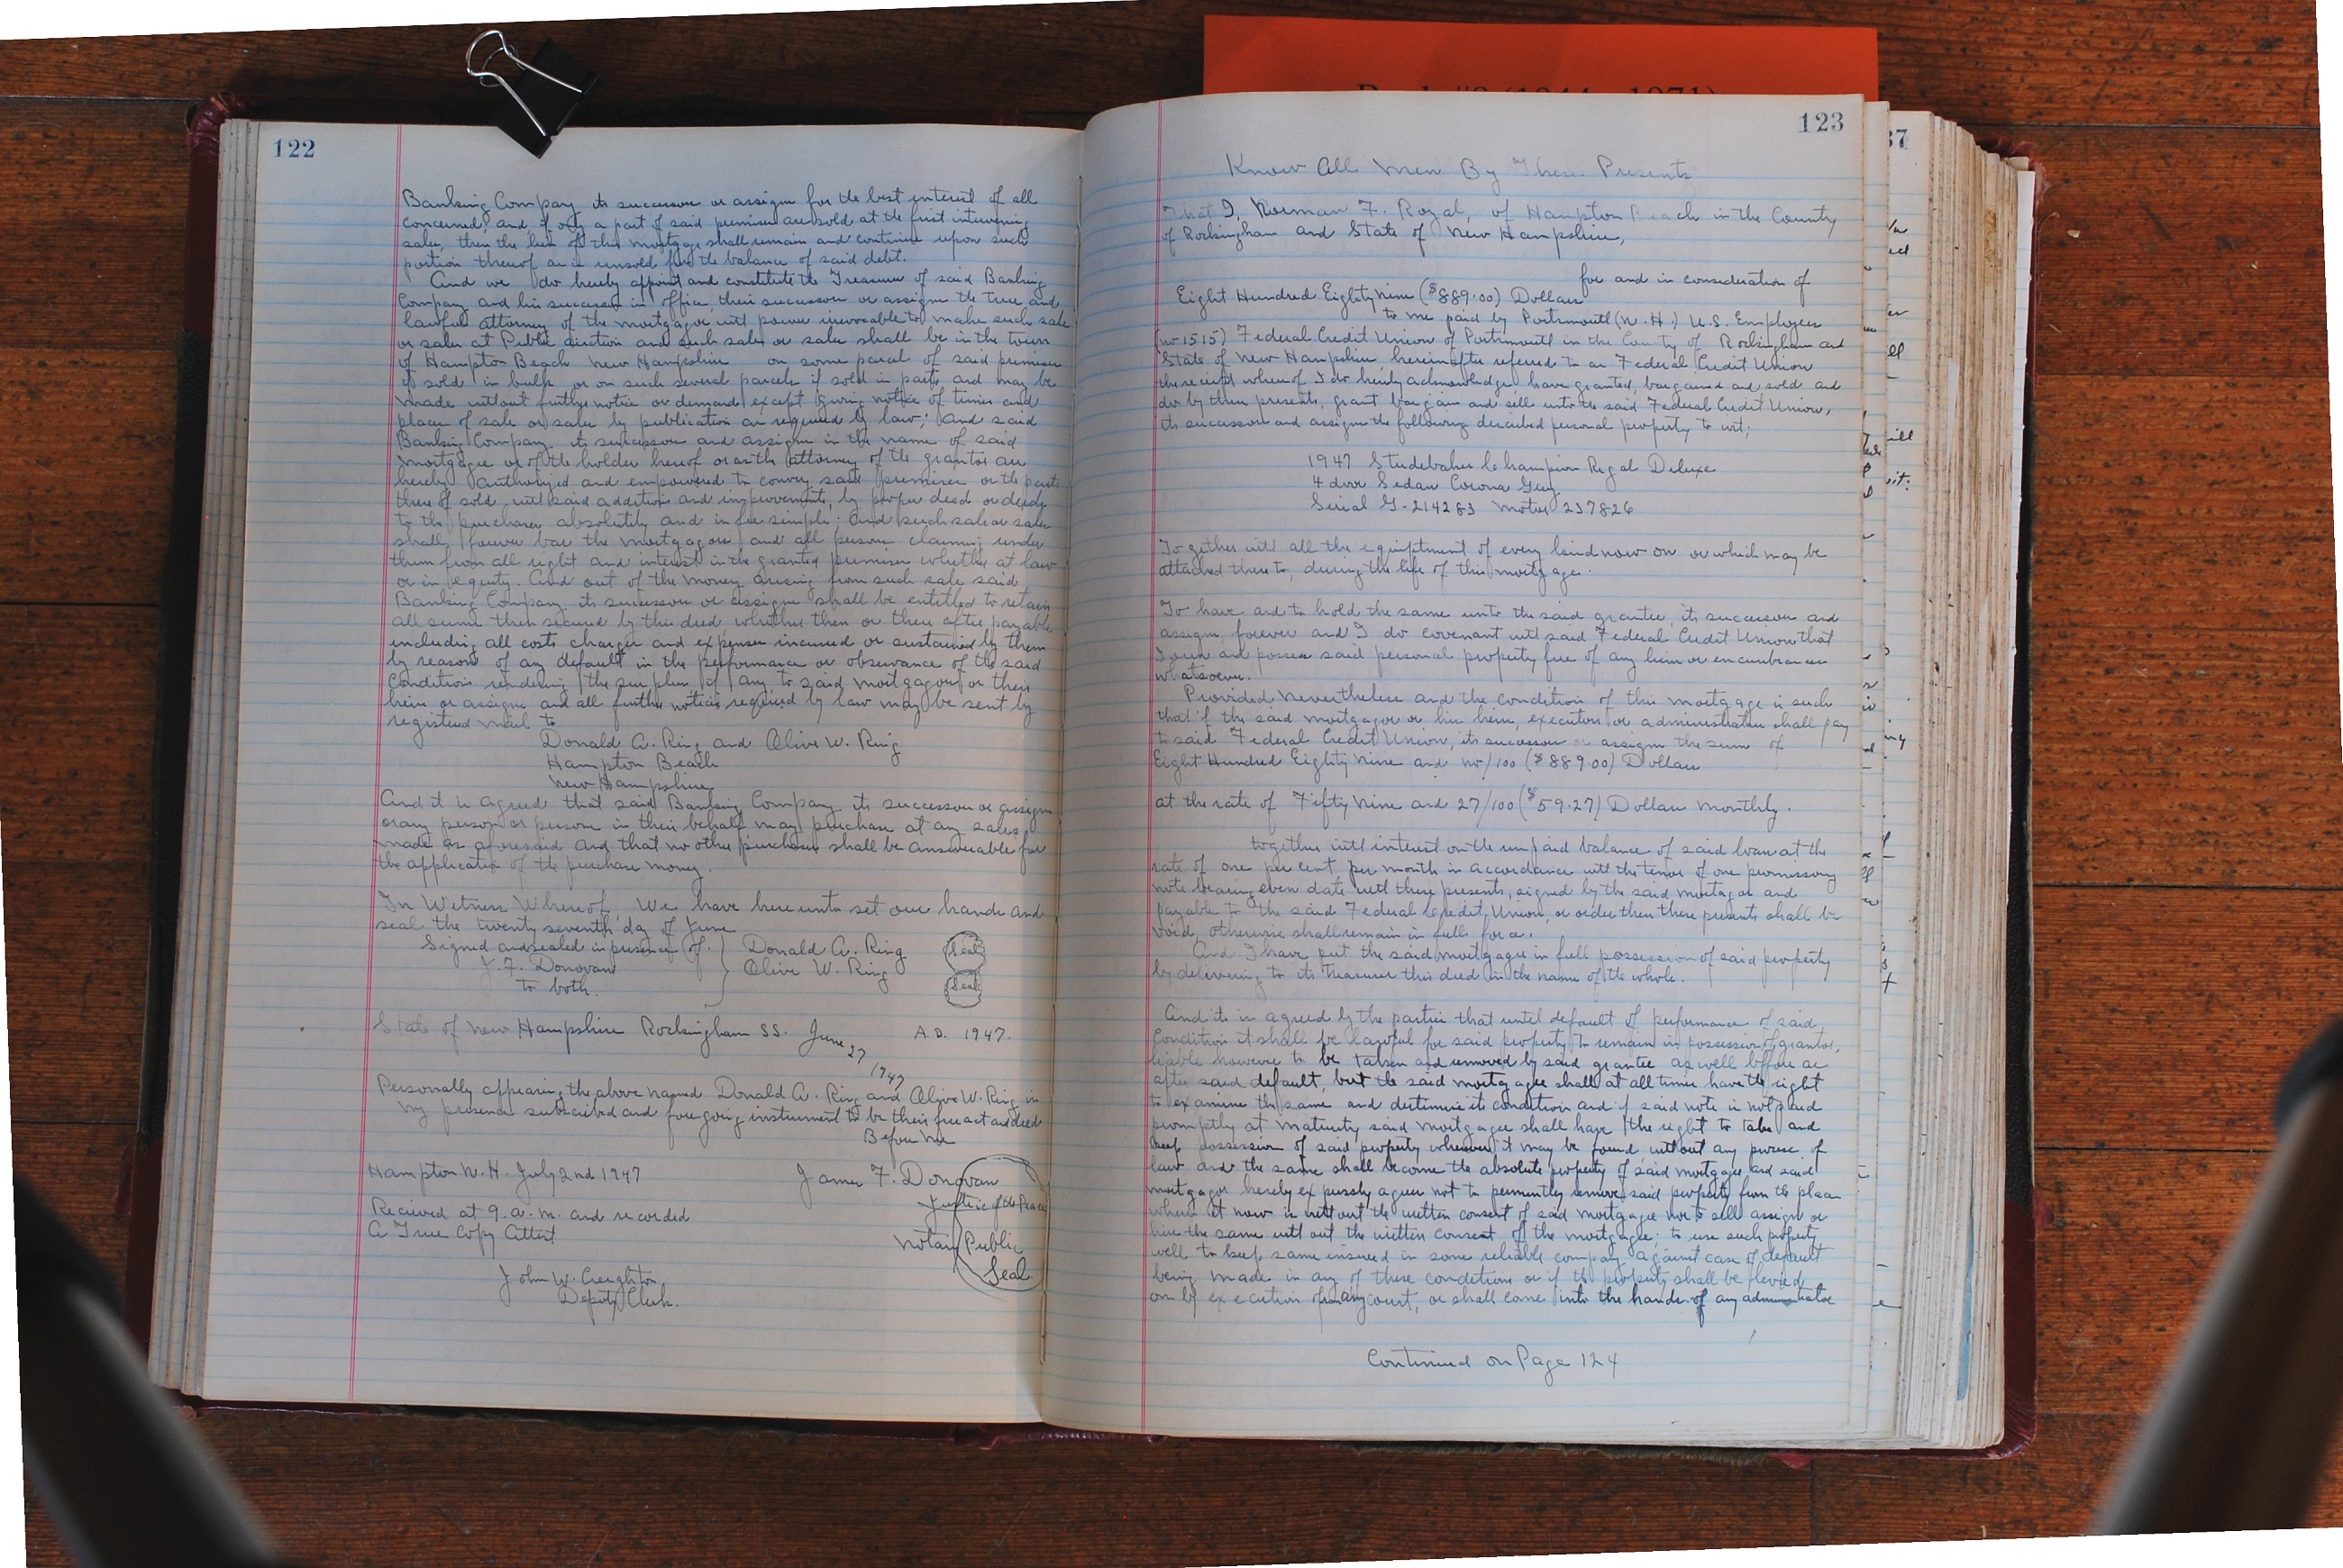 122
Banking Company its successors or assigns for the best interest of all
concerned; and if only a part of said premises are sold at the first intervening
sale, then the lien of this mortgage shall remain and continue upon such
portion thereof as is unsold for the balance of said debt.
And we do hereby appoint and constitute the Treasurer of said Banking
Company and his successor in office, their successors or assigns the true and
lawful attorney of the mortgagor with power irrevocable to make such sale
or sales at Public auction and such sale or sales shall be in the town
of Hampton Beach New Hampshire on some parcel of said premises
if sold in bulk or on such several parcels if sold in parts and may be
made without further notice or demand except giving notice of times and
place of sale or sales by publication as required by law; and said
Banking Company its successors and assigns in the name of said
mortgagor or of the holder hereof or as the attorney of the grantor are
hereby authorized and empowered to convey said premises or the parts
there of sold, with said additions and improvements, by proper deed or deeds
to the purchaser absolutely and in fee simple; and such sale or sales
shall forever bar the mortgagors and all persons claiming under
them from all right and interest in the granted premises whether at law
or in equity. And out of the money arising from such sale said
Banking Company its successors or assigns shall be entitled to retain
all sums then secured by this deed whether then or there after payable
including all costs charges and expenses incurred or sustained by them
by reason of any default in the performance or observance of the said
Condition rendering the surplus if any to said mortgagors or their
heirs or assigns and all further notices required by law may be sent by
registered mail to
Donald A. Ring and Olive W. Ring
Hampton Beach
New Hampshire
And it is agreed that said Banking Company its successors or assigns
or any person or persons in their behalf may purchase at any sales
made as aforesaid and that no other purchaser shall be answerable for
the application of the purchase money.
In Witness Whereof, We have here unto set our hands and
seal the twenty seventh day of June
Signed and sealed in presence of } Donald A. Ring Seal
J. F. Donovan Olive W. Ring Seal
to both.
State of New Hampshire Rockingham SS. June 27 1947 A.D. 1947.
Personally appearing the above named Donald A. Ring and Olive W. Ring in
my presence subscribed and foregoing instrument to be their free act and deed
Before me
Hampton N.H. July 2nd 1947 James F. Donovan
Justice of the Peace
Received at 9. a.m. and recorded
A True Copy Attest Notary Public
Seal
John W. Creighton
Deputy Clerk.
123
37
Know All Men By These Presents
That I, Norman F. Royal, of Hampton Beach in the County
of Rockingham and State of New Hampshire,
for and in consideration of
Eight Hundred Eighty Nine ($889.00) Dollars
to me paid by Portsmouth (N.H.) U.S. Employees
(no 1515) Federal Credit Union of Portsmouth in the County of Rockingham and
State of New Hampshire, hereinafter referred to as Federal Credit Union
the receipt whereof I do hereby acknowledge have granted, bargained and sold and
do by these presents, grant bargain and sell unto the said Federal Credit Union,
its successors and assigns the following described personal property to wit;
1947 Studebaker Champion Regal Deluxe
4 door Sedan Corona Grey
Serial G-214283 Motor 237826
Together with all the equiptment of every kind now on or which may be
attached there to, during the life of this mortgage.
To have and to hold the same unto the said grantee, its successors and
assigns forever and I do covenant with said Federal Credit Union that
I own and possess said personal property free of any liens or encumbrances
whatsoever.
Provided Nevertheless and the condition of this mortgage is such
that if the said mortgagor or his heirs, executors or administrators shall pay
to said Federal Credit Union, its successors or assigns the sum of
Eight Hundred Eighty Nine and no/100 ($889.00) Dollars
at the rate of Fifty Nine and 27/100 ($59.27) Dollars monthly.
together with interest on the unpaid balance of said loan at the
rate of one per cent per month in accordance with the tenor of one promissory
note bearing even date with these presents, signed by the said mortgagor and
payable to the said Federal Credit Union, or order then these presents shall be
void, otherwise shall remain in full force.
And I have put the said mortgagee in full possession of said property
by delivering to its Treasurer this deed in the name of the whole.
And it is agreed by the parties that until default of performance of said
Condition it shall be lawful for said property to remain in possession of grantor,
liable however to be taken and removed by said grantee as well before as
after said default, but the said mortgagee shall at all times have the right
to examine the same and determine its condition and if said note is not paid
promptly at maturity said mortgagee shall have the right to take and
keep possession of said property wherever it may be found without any process of
law and the same shall become the absolute property of said mortgagee and said
mortgagor hereby expressly agrees not to permently remove said property from the place
where it now is without the written consent of said mortgagee nor to sell assign or
hire the same with out the written consent of the mortgagee; to use such property
well to keep same insured in some reliable company against case of default
being made in any of these conditions or if the property shall be levied
on by execution from any court, or shall come into the hands of any administrator
Continued on Page 124